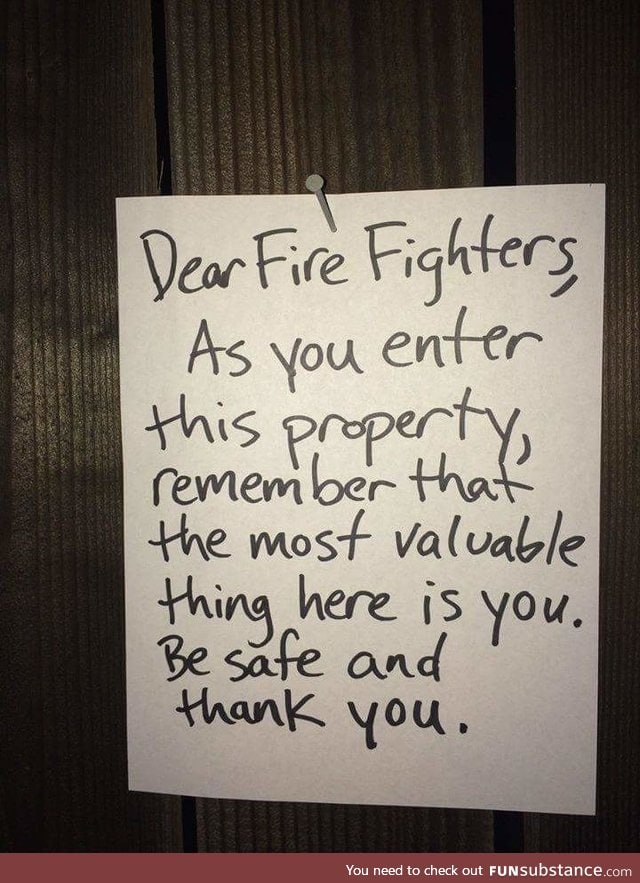 Dear Fire Fighters,
As you enter
this property,
remember that
the most valuable
thing here is you.
Be safe and
thank you.
You need to check out FUNsubstance.com